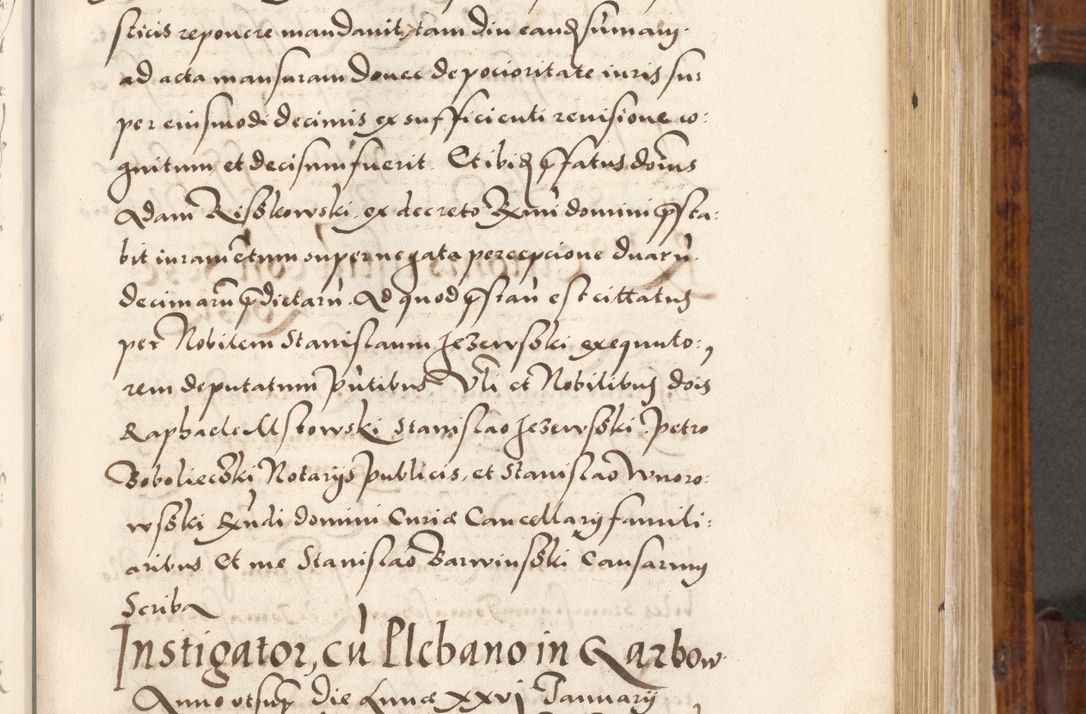 sticis reponere mandavit, tam diu eandem summam
ad acta mansuram donec de pocioritate iuris su-
per eiusmodi decimis ex sufficienti revisione co:
gnitum et decisum fuerit. Et ibidem prefatus domus
Adam Risskowski ex decreto Rmi domini presta:
bit iuramentum super negata percepcione duarum
decimarum predictarum. Ad quod prestandum est citatus
per Nobilem Stanislaum Jezewsski exequuto:
rem deputatum putibus Vli et Nobilibus dois
Raphaele Mstowski Stanislao Jezewsski Petro
Boboliecski Notarijs publicis, et Stanislao Wnoro:
wsski Rndi domini Curiae Cancellarij famili:
aribus Et me Stanislao Barwinsski Causarum
Scriba
Instigator, cum Plebano in Karbow
Anno utsup die Lunae XXVI Januarij